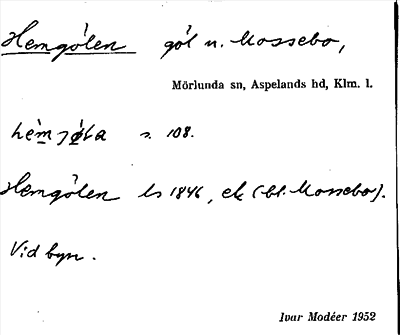 Hemgölen göl n. Mossebo,
Mörlunda sn, Aspelands hd, Klm. l.
s. 108.
Hemgölen ls 1846, ek (bl. Mossebo).
Vid byn.
Ivar Modéer 1952